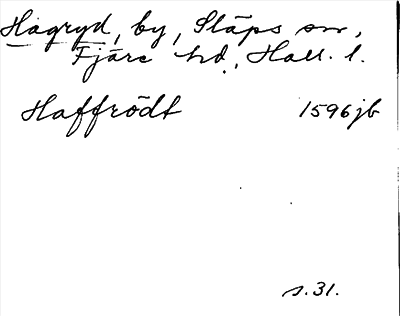 Hagryd, by, Släps sn,
Fjäre hd, Hall. l.
Haffrödt 1596 jb
s. 31.